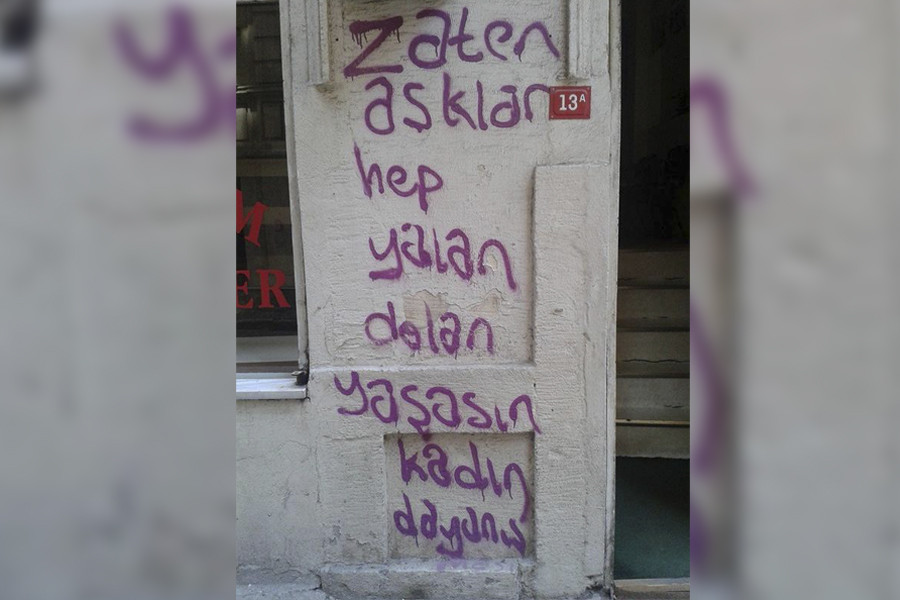 zaten
aşkları
13A
hep
yalan
dolan
yaşasın
kadın
dayanış
M
ER